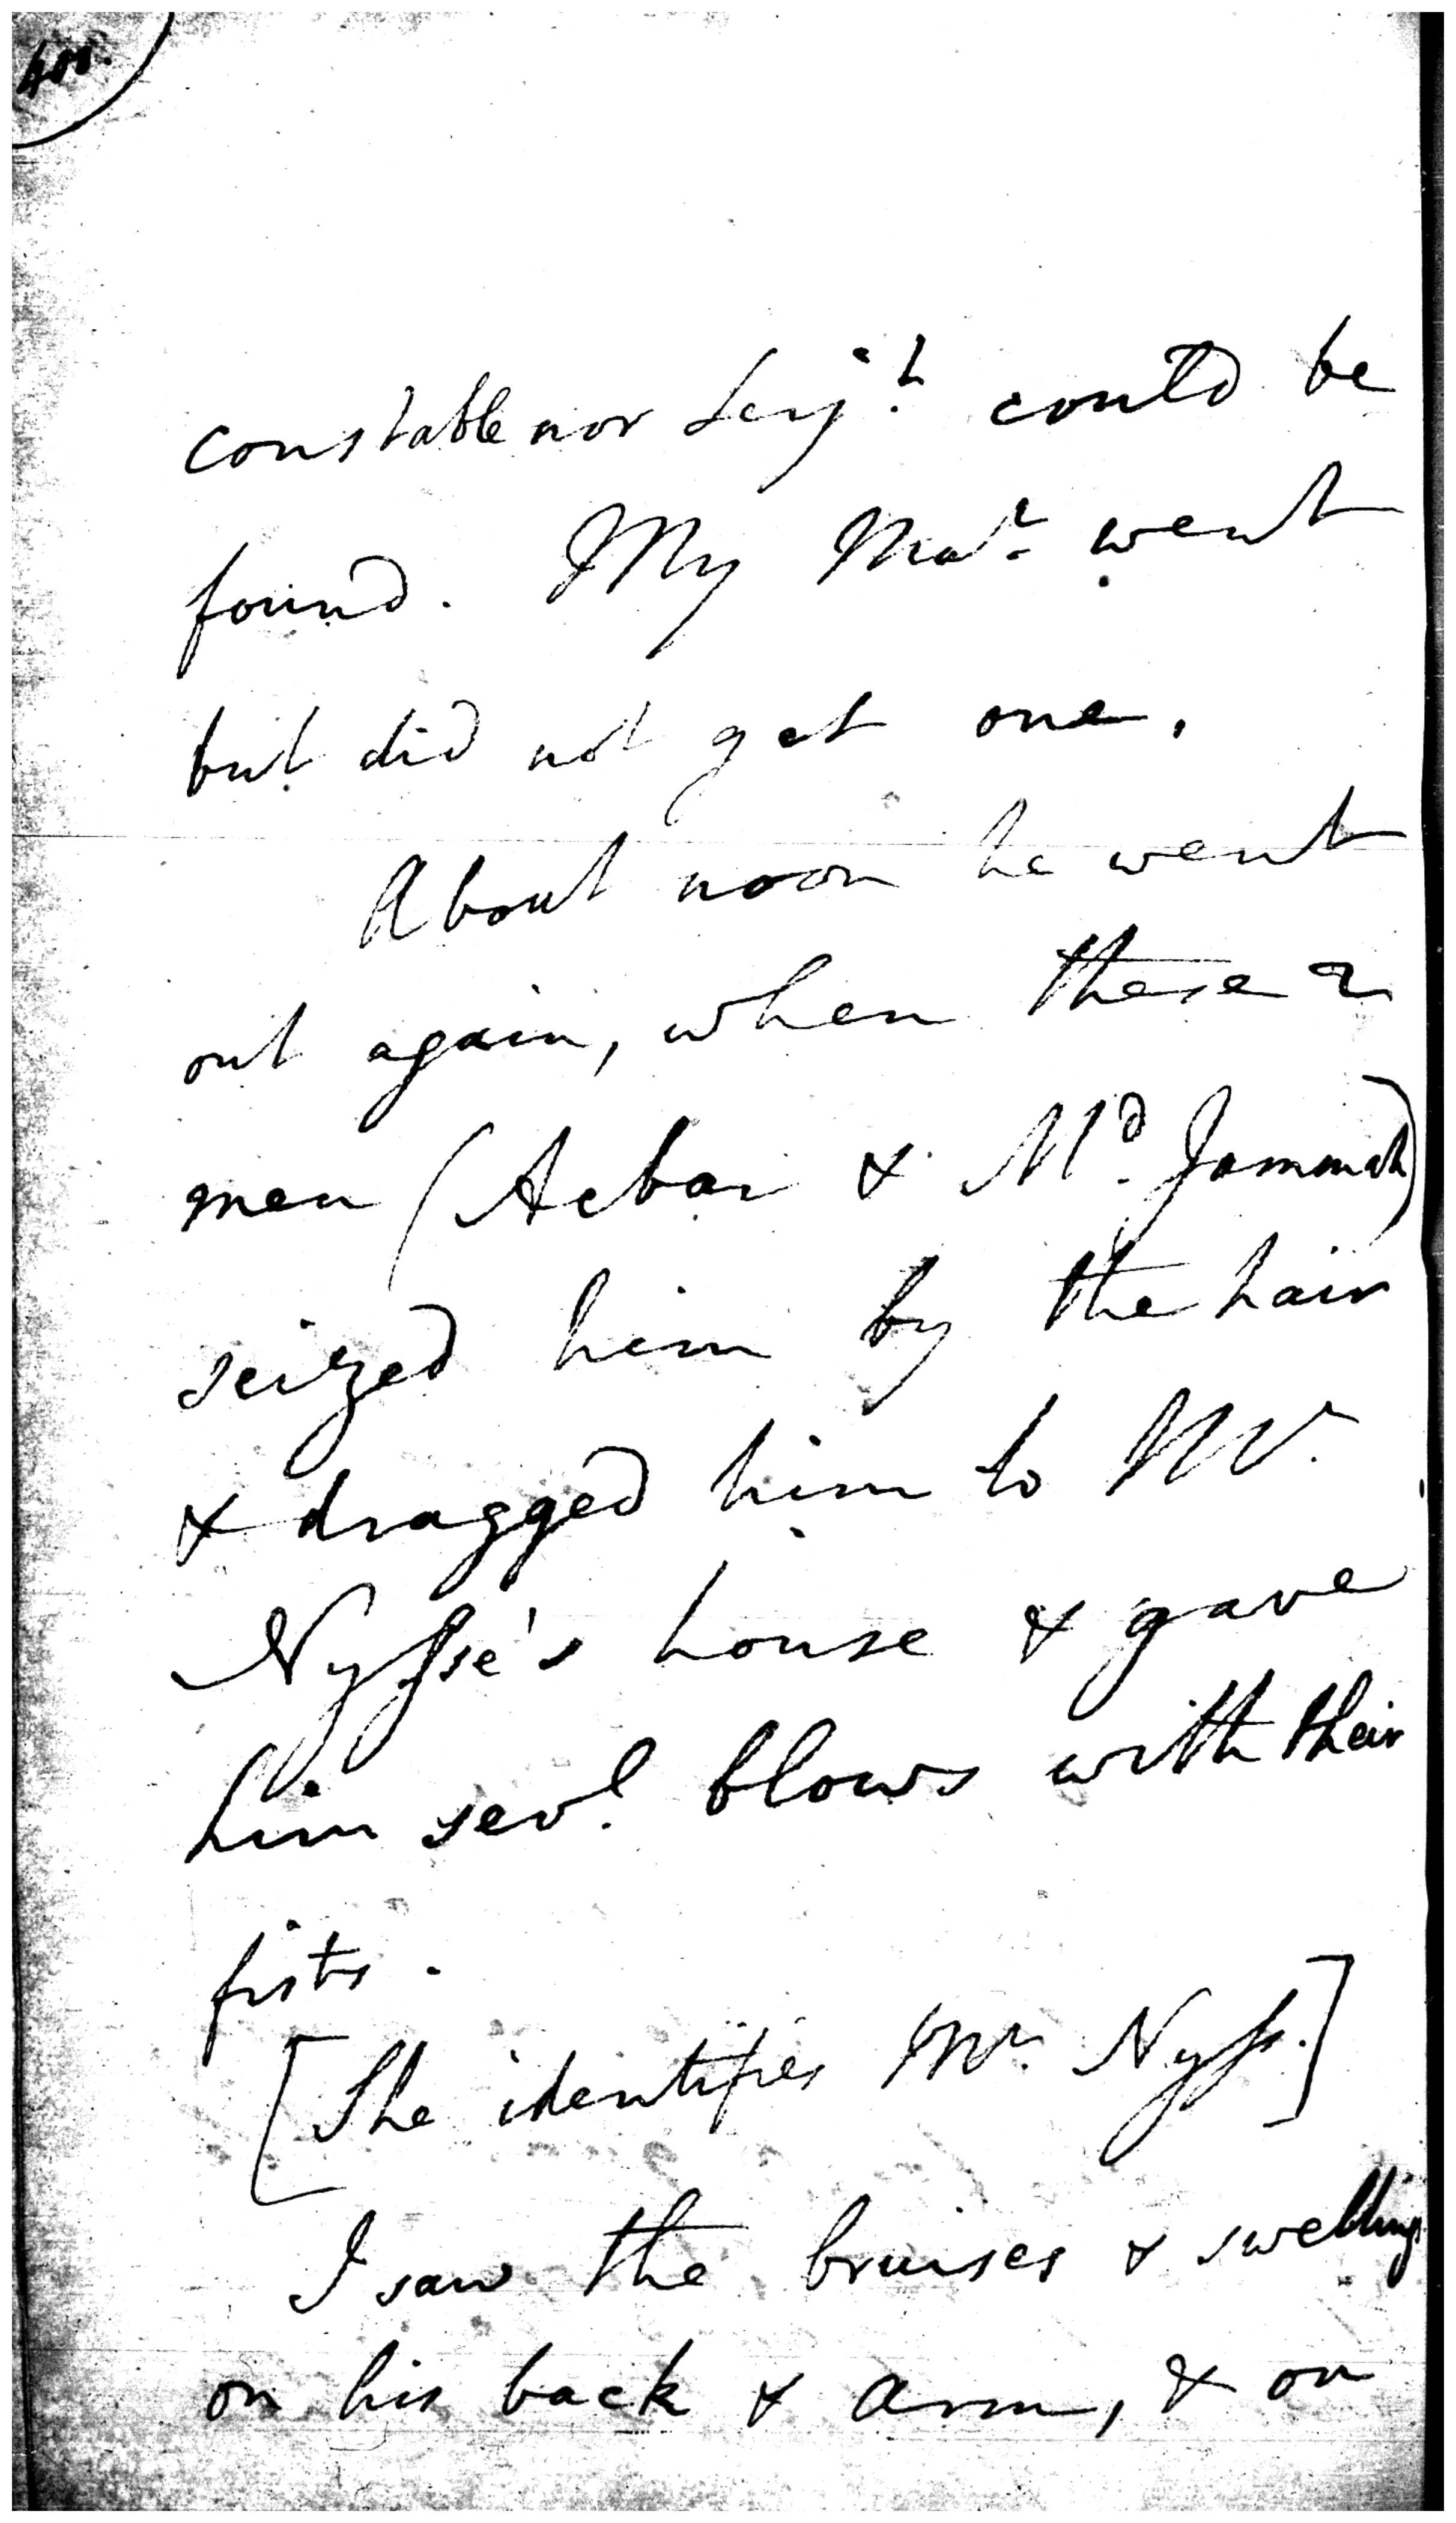 400.
constable nor Serjt. could be
found. My Mar. went
but did not get one.
About noon he went
out again, when these 2
men (Acbar & Md. Jammah)
seized him by the hair
& dragged him to Mr.
Nysse's house & gave
him sevl. blows with their
fists.
[She identifies Mr. Nyss.]
I saw the bruises & swelling
on his back & arm, & on